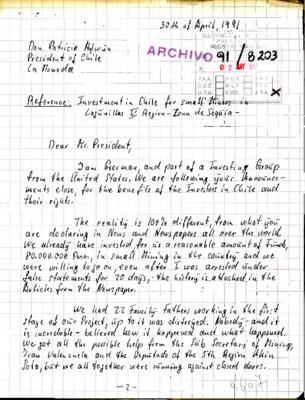 30th of April, 1991
Don Patricio Aylwin
President of Chile
La Moneda
ARCHIVO 91/8203
Reference: Investment in Chile for small Miners in
V. Region - Zona de Sequia -
Dear Mr. President,
I am German, and part of a Investing Group
from the United States. We are following your Announce-
ments close, for the benefits of the Investors in Chile and
their rights.
The reality is 100% different, from what you
are declaring in News and Newspapers all over the World.
We already have invested for us a reasonable amount of Funds,
Pesos, in small Mining in the country and we
were willing to go on, even after I was arrested under
false statements for 20 days; the history is attached in the
Articles from the Newspaper.
We had 22 Family fathers working in the first
stage of our Project, up to it was distroyed. Nobody - and it
is incredable - believed how it happened and what happened.
We got all the possible help from the Sub Secretary of Mining,
Ivan Valenzuela and the Diputado of the 5th Region Akin
Soto, but we all together were running against closed doors.
- 2 -